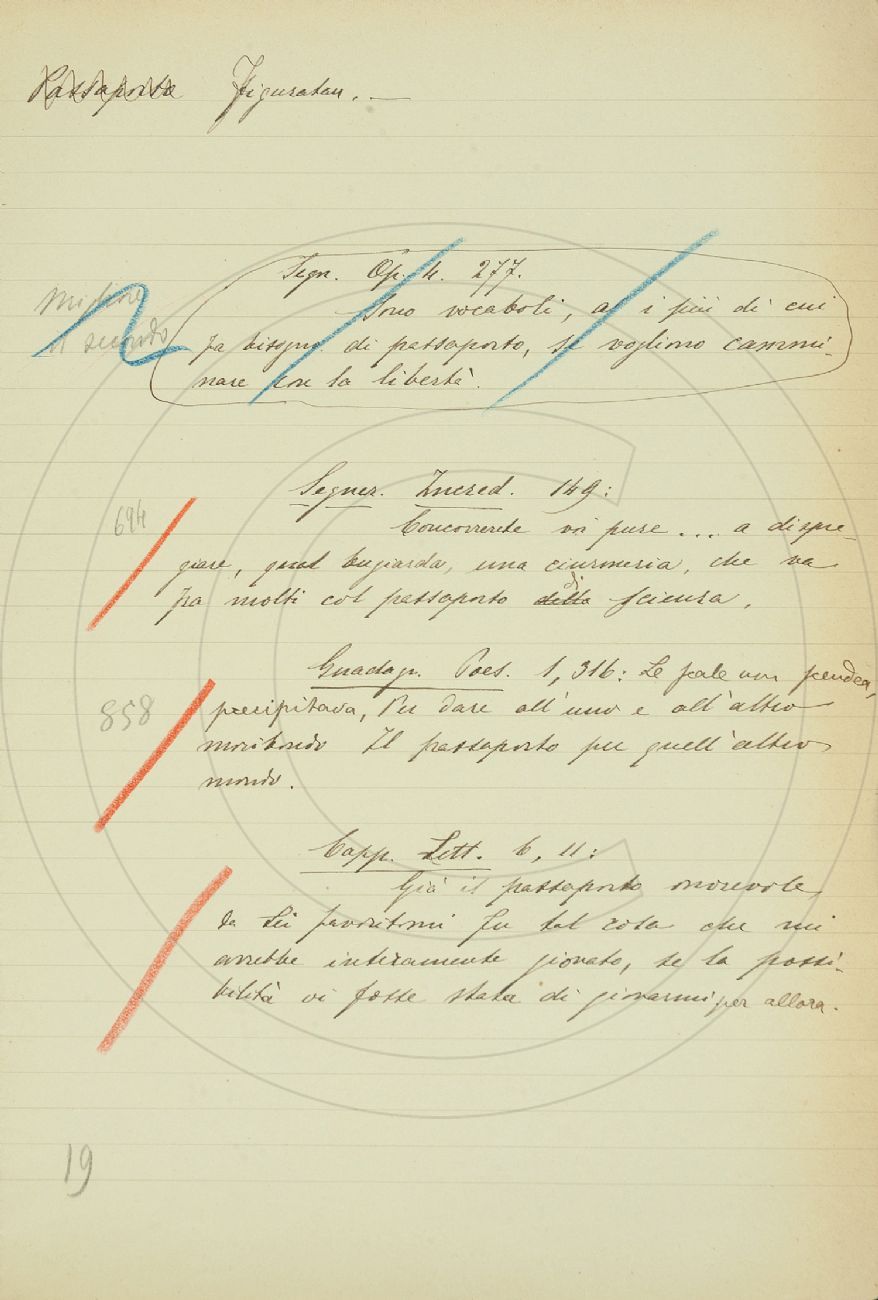 Passaporto Figuratam. —
Segn. Op. 4. 277.
Migliore
Sono vocaboli, a i più di cui
il secondo
fa bisogno di passaporto, se vogliono cammi-
nare con la libertà.
Segner. Incred. 149:
694
Concorrerete voi pure ... a dispre-
giare, qual bugiarda, una ciurmeria, che va
fra molti col passaporto della di scienza.
Guadagn. Poes. 1, 316: Le scale non scendea,
858
precipitava, Per dare all'uno e all'altro
moribondo Il passaporto per quell'altro
mondo.
Capp. Lett. 6, 11:
Già il passaporto onorevole
da Lei favoritomi fu tal cosa che mi
avrebbe interamente giovato, se la possi-
bilità vi fosse stata di giovarmi per allora.
19